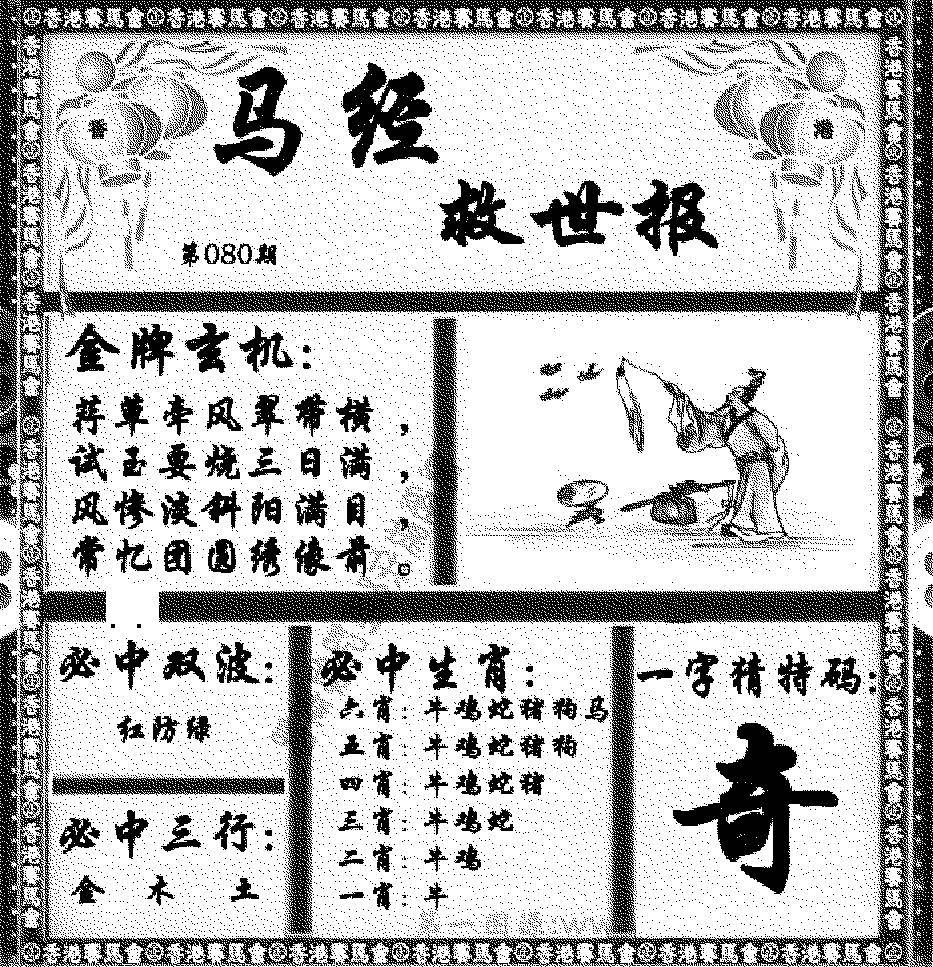 香港賽馬會香港賽馬會香港賽馬會香港賽馬會香港賽馬會香港賽馬會香港賽馬會
香
港
马经
救世报
第080期
金牌玄机:
荇草牵风翠带横,
试玉要烧三日满,
风惨淡斜阳满目,
常忆团圆绣像前。
必中双波:
红防绿
必中三行:
金 木 土
必中生肖:
六肖:牛鸡蛇猪狗马
五肖:牛鸡蛇猪狗
四肖:牛鸡蛇猪
三肖:牛鸡蛇
二肖:牛鸡
一肖:牛
一字猜特码:
奇
香港賽馬會香港賽馬會香港賽馬會香港賽馬會香港賽馬會香港賽馬會香港賽馬會